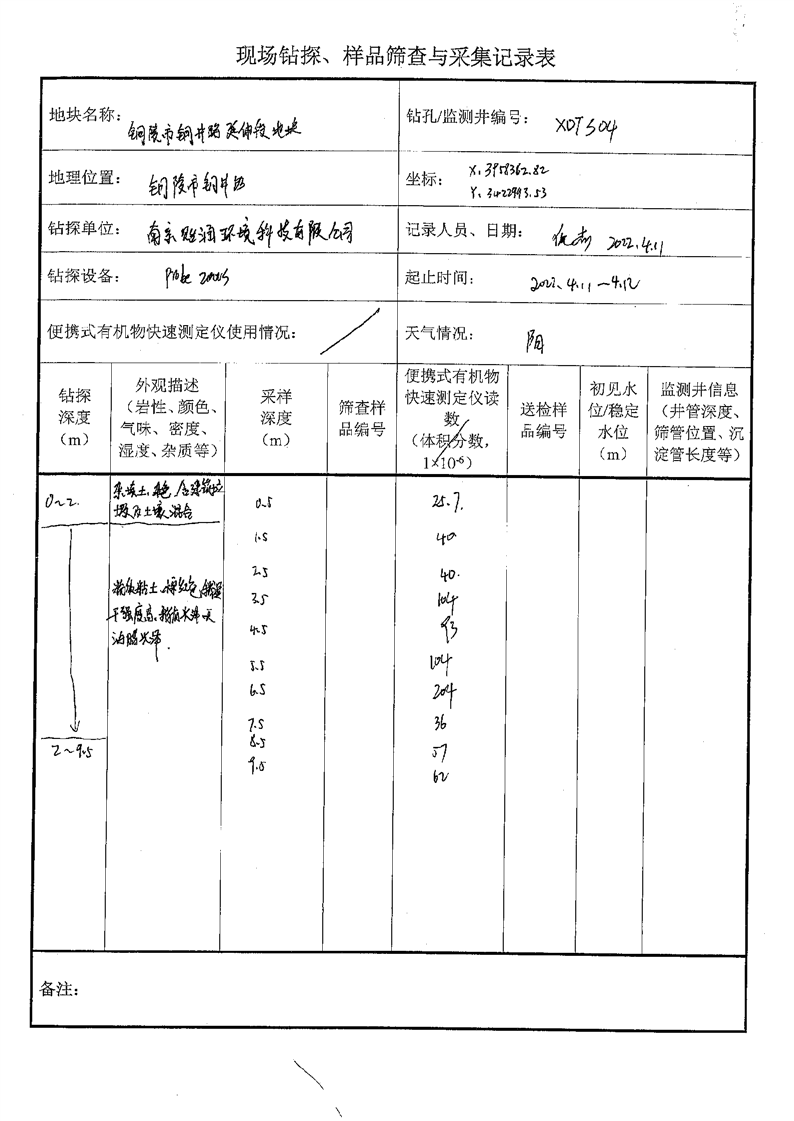 现场钻探、样品筛查与采集记录表
地块名称： 铜陵市铜井路延伸段地块
钻孔/监测井编号： XDTS04
地理位置： 铜陵市铜井
坐标： X: 3958362.82
Y: 3422993.53
钻探单位： 南京 环境科技有限公司
记录人员、日期： 2022.4.11
钻探设备： Probe
起止时间： 2022.4.11—4.12
便携式有机物快速测定仪使用情况： /
天气情况： 阴
钻探
深度
（m）
外观描述
（岩性、颜色、
气味、密度、
湿度、杂质等）
采样
深度
（m）
筛查样
品编号
便携式有机物
快速测定仪读
数
（体积分数，
1×10⁻⁶）
送检样
品编号
初见水
位/稳定
水位
（m）
监测井信息
（井管深度、
筛管位置、沉
淀管长度等）
0~2
杂填土、
圾及土壤混合
0.5 25.7
1.5 40
2.5 40
粉质粘土、
3.5 104
干强度高、
4.5 93
5.5 104
6.5 204
7.5 36
2~9.5
8.5 57
9.5 62
备注：